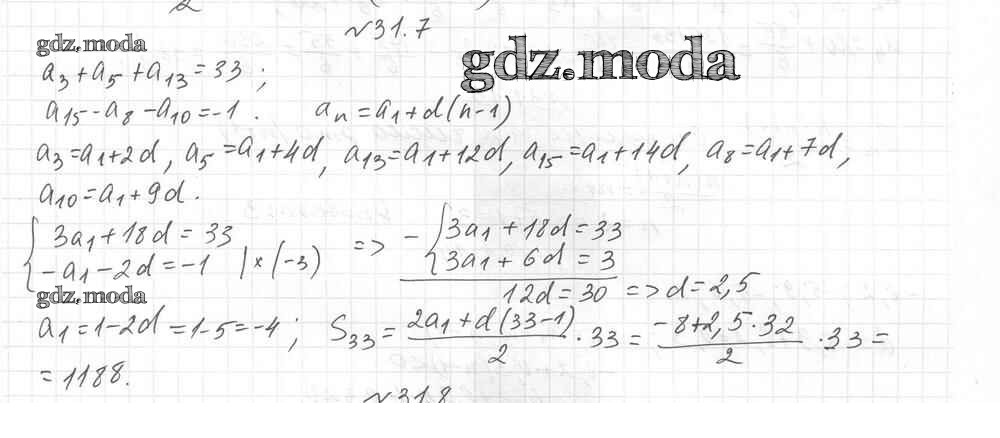 №31.7
gdz.moda
gdz.moda
a₃+a₅+a₁₃=33;
a₁₅-a₈-a₁₀=-1. aₙ=a₁+d(n-1)
a₃=a₁+2d, a₅=a₁+4d, a₁₃=a₁+12d, a₁₅=a₁+14d, a₈=a₁+7d,
a₁₀=a₁+9d.
{3a₁+18d=33 => -{3a₁+18d=33
-a₁-2d=-1 |×(-3) 3a₁+6d=3
12d=30 => d=2,5
gdz.moda
a₁=1-2d=1-5=-4; S₃₃=(2a₁+d(33-1))/2·33=(-8+2,5·32)/2·33=
=1188.
№31.8